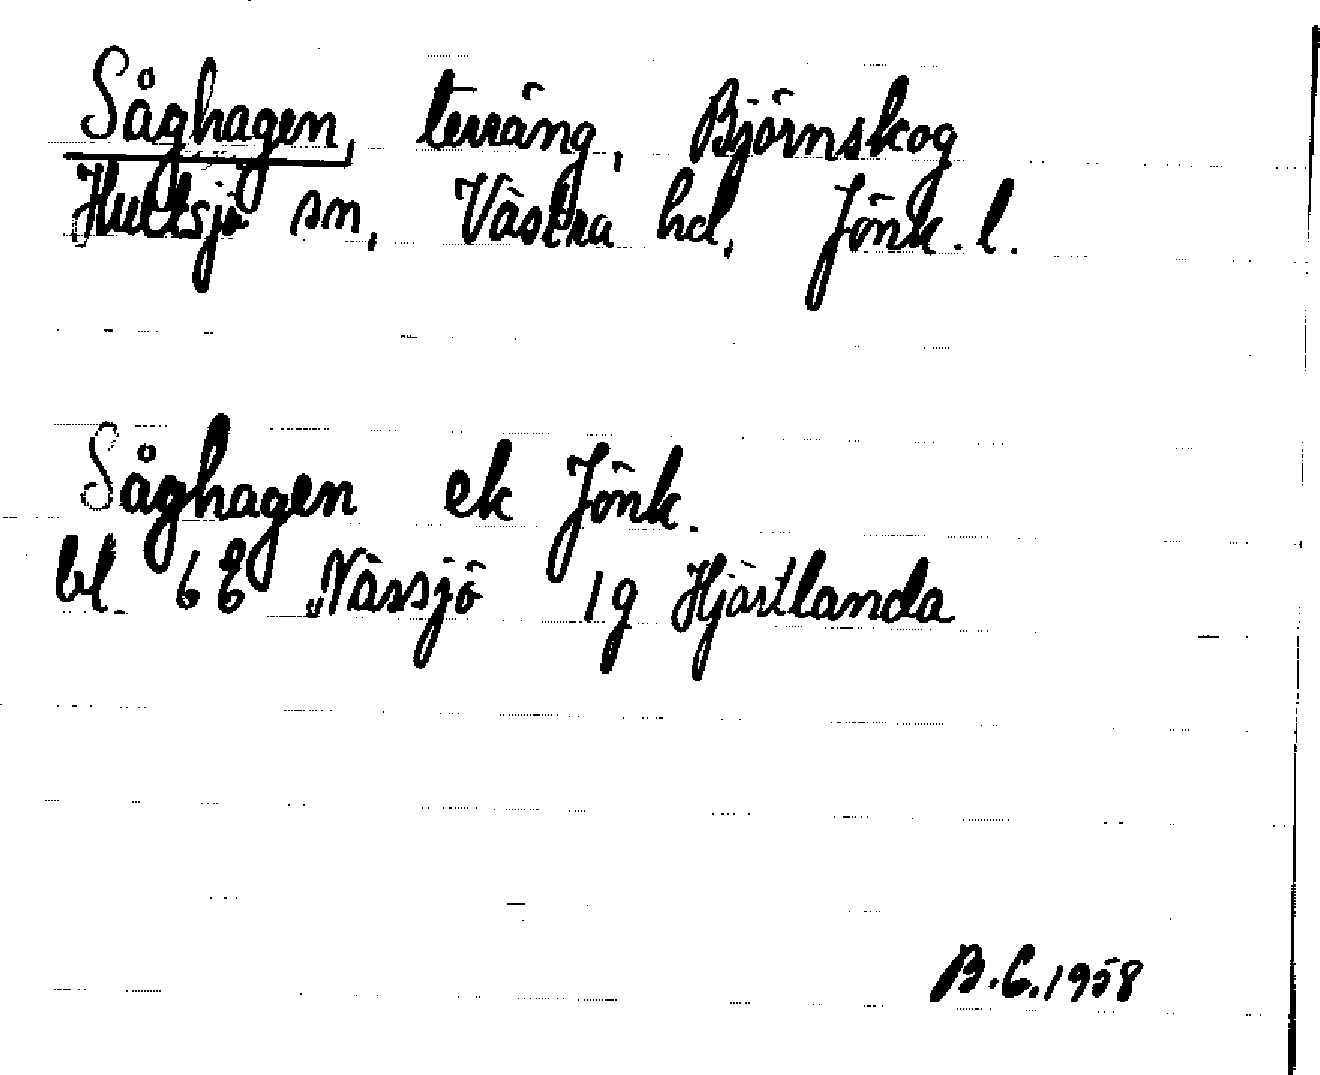 Såghagen, terräng, Björnskog
Hultsjö sn, Västra hd, Jönk. l.
Såghagen ek Jönk.
bl. 6E Nässjö 1g Hjärtlanda
B.G.1958